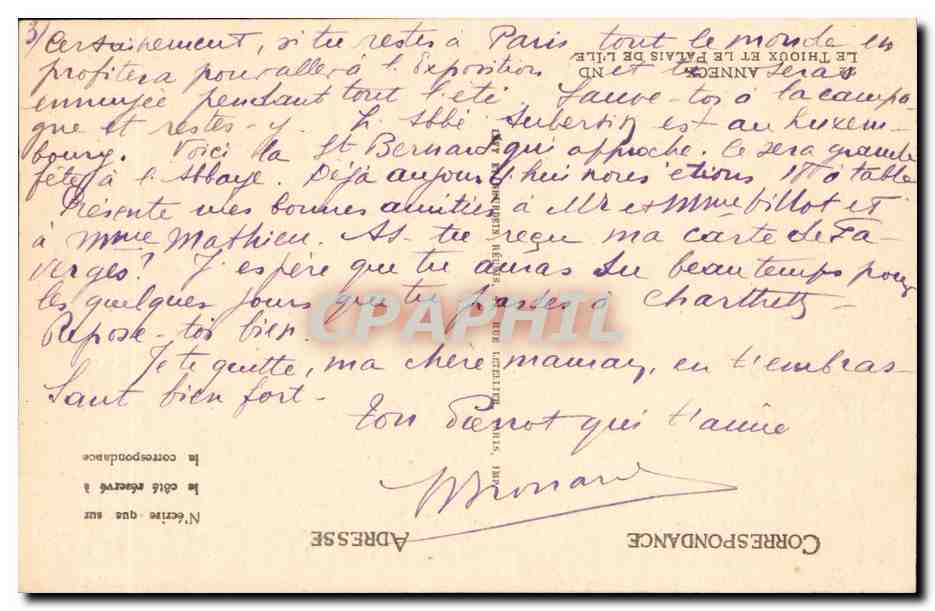 3/
Certainement, si tu restes à Paris tout le monde en
profitera pour aller à l'Exposition et tu seras
ennuyée pendant tout l'été. Sauve-toi à la campa-
gne et restes-y. L'Abbé est au Luxem-
bourg. Voici la St Bernard qui approche. Ce sera grande
fête à l'Abbaye. Déjà aujourd'hui nous étions à table
Présente mes bonnes amitiés à Mr et Mme Billot et
à Mme Mathieu. As-tu reçu ma carte de Fa-
verges? J'espère que tu auras du beau temps pour
les quelques jours que tu passes à Charttretz-
Repose-toi bien.
Je te quitte, ma chère maman, en t'embras-
sant bien fort-
Ton Pierrot qui t'aime
CPAPHIL
ANNECY ND
LE THIOUX ET LE PALAIS DE L'ILE
LEVY ET NEURDEIN RÉUNIS, RUE LETELLIER, PARIS, IMP.
CORRESPONDANCE
ADRESSE
N'écrire que sur
le côté réservé à
la correspondance